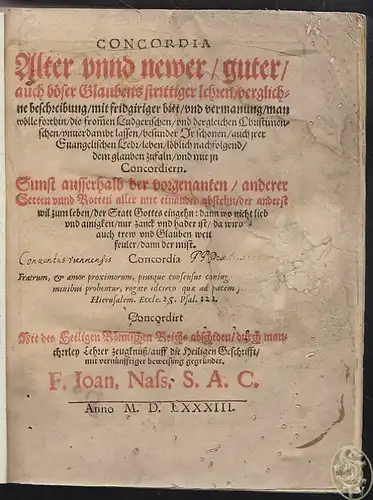 CONCORDIA
Alter vnnd newer / guter /
auch böser Glaubens strittiger lehren / verglich-
ne beschreibung / mit fridgiriger bitt / vnd vermanung / man
wölle forthin / die frommen Ludgerischen / vnd dergleichen Christianen-
schen / vnuerdambt lassen / besunder Ir schonen / auch jrer
Euangelischen Lehr / leben / löblich nachfolgend /
dem glauben zufaln / vnd mit jn
Concordiern.
Sunst ausserhalb der vorgenanten / anderer
Secten vnnd Rotten aller mit einander abstehn / der anderst
wil zum leben / der Statt Gottes eingehn: dann wo nicht lieb
vnd ainigkeit / nur zanck vnd hader ist / da wirdt
auch trew vnd Glauben weit
feuler / dann der mist.
Conuentus viennensis Concordia P P
Fratrum, & amor proximorum, piusque consensus coniug
minibus probentur, rogate idcirco quæ ad pacem,
Hierusalem. Eccle. 25. Psal. 121.
Concordirt
Mit des Heiligen Römischen Reichs abschiden / durch man-
cherley Lehrer zeugknuß / auff die Heiligen Geschrifft /
mit vernünfftiger beweisung gegründet.
F. Ioan, Nass, S. A. C.
Anno M. D. LXXXIII.